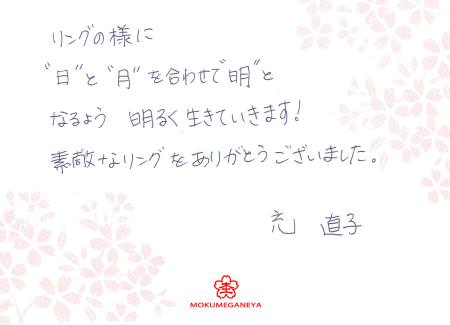 リングの様に
"日"と"月"を合わせて"明"と
なるよう 明るく生きていきます!
素敵なリングをありがとうございました。
充 直子
MOKUMEGANEYA